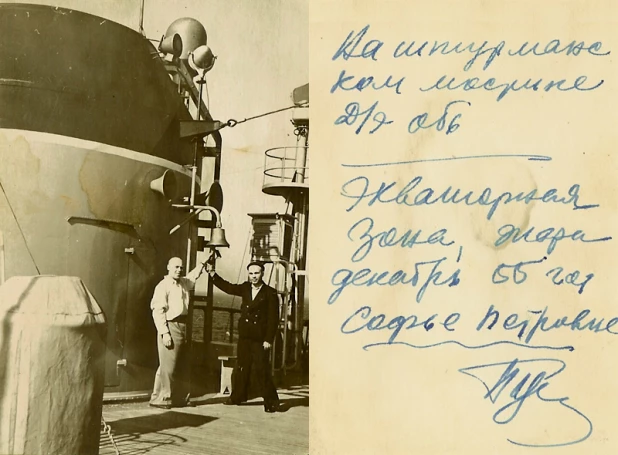 На штурманс
ком мостике
Д/э Обь
Экваторная
Зона, жара
декабрь 55 год
Софье Петровне